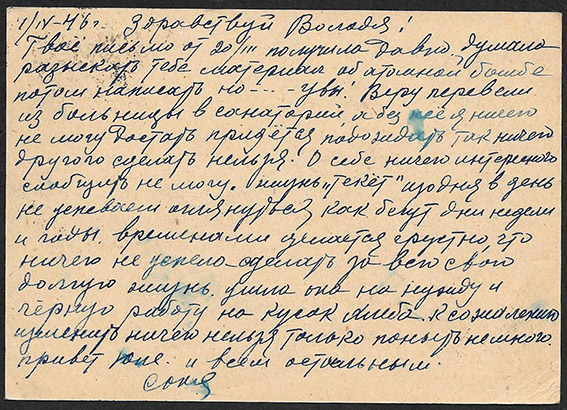 1/IV-46г. Здравствуй Володя!
Твоё письмо от 20/III получила давно, думала
разыскать тебе материал об атомной бомбе
потом написать но --- увы! Веру перевели
из больницы в санаторий, а без неё я ничего
не могу достать придётся подождать так ничего
другого сделать нельзя. О себе ничего интересного
сообщить не могу. жизнь „течёт" изо дня в день
не успеваем оглянуться как бегут дни недели
и годы. временами делается грустно, что
ничего не успела сделать за всю свою
долгую жизнь. ушла она на нужду и
чёрную работу на кусок хлеба. к сожалению
изменить ничего нельзя только поныть немного.
привет Юле. и всем остальным.
Соня